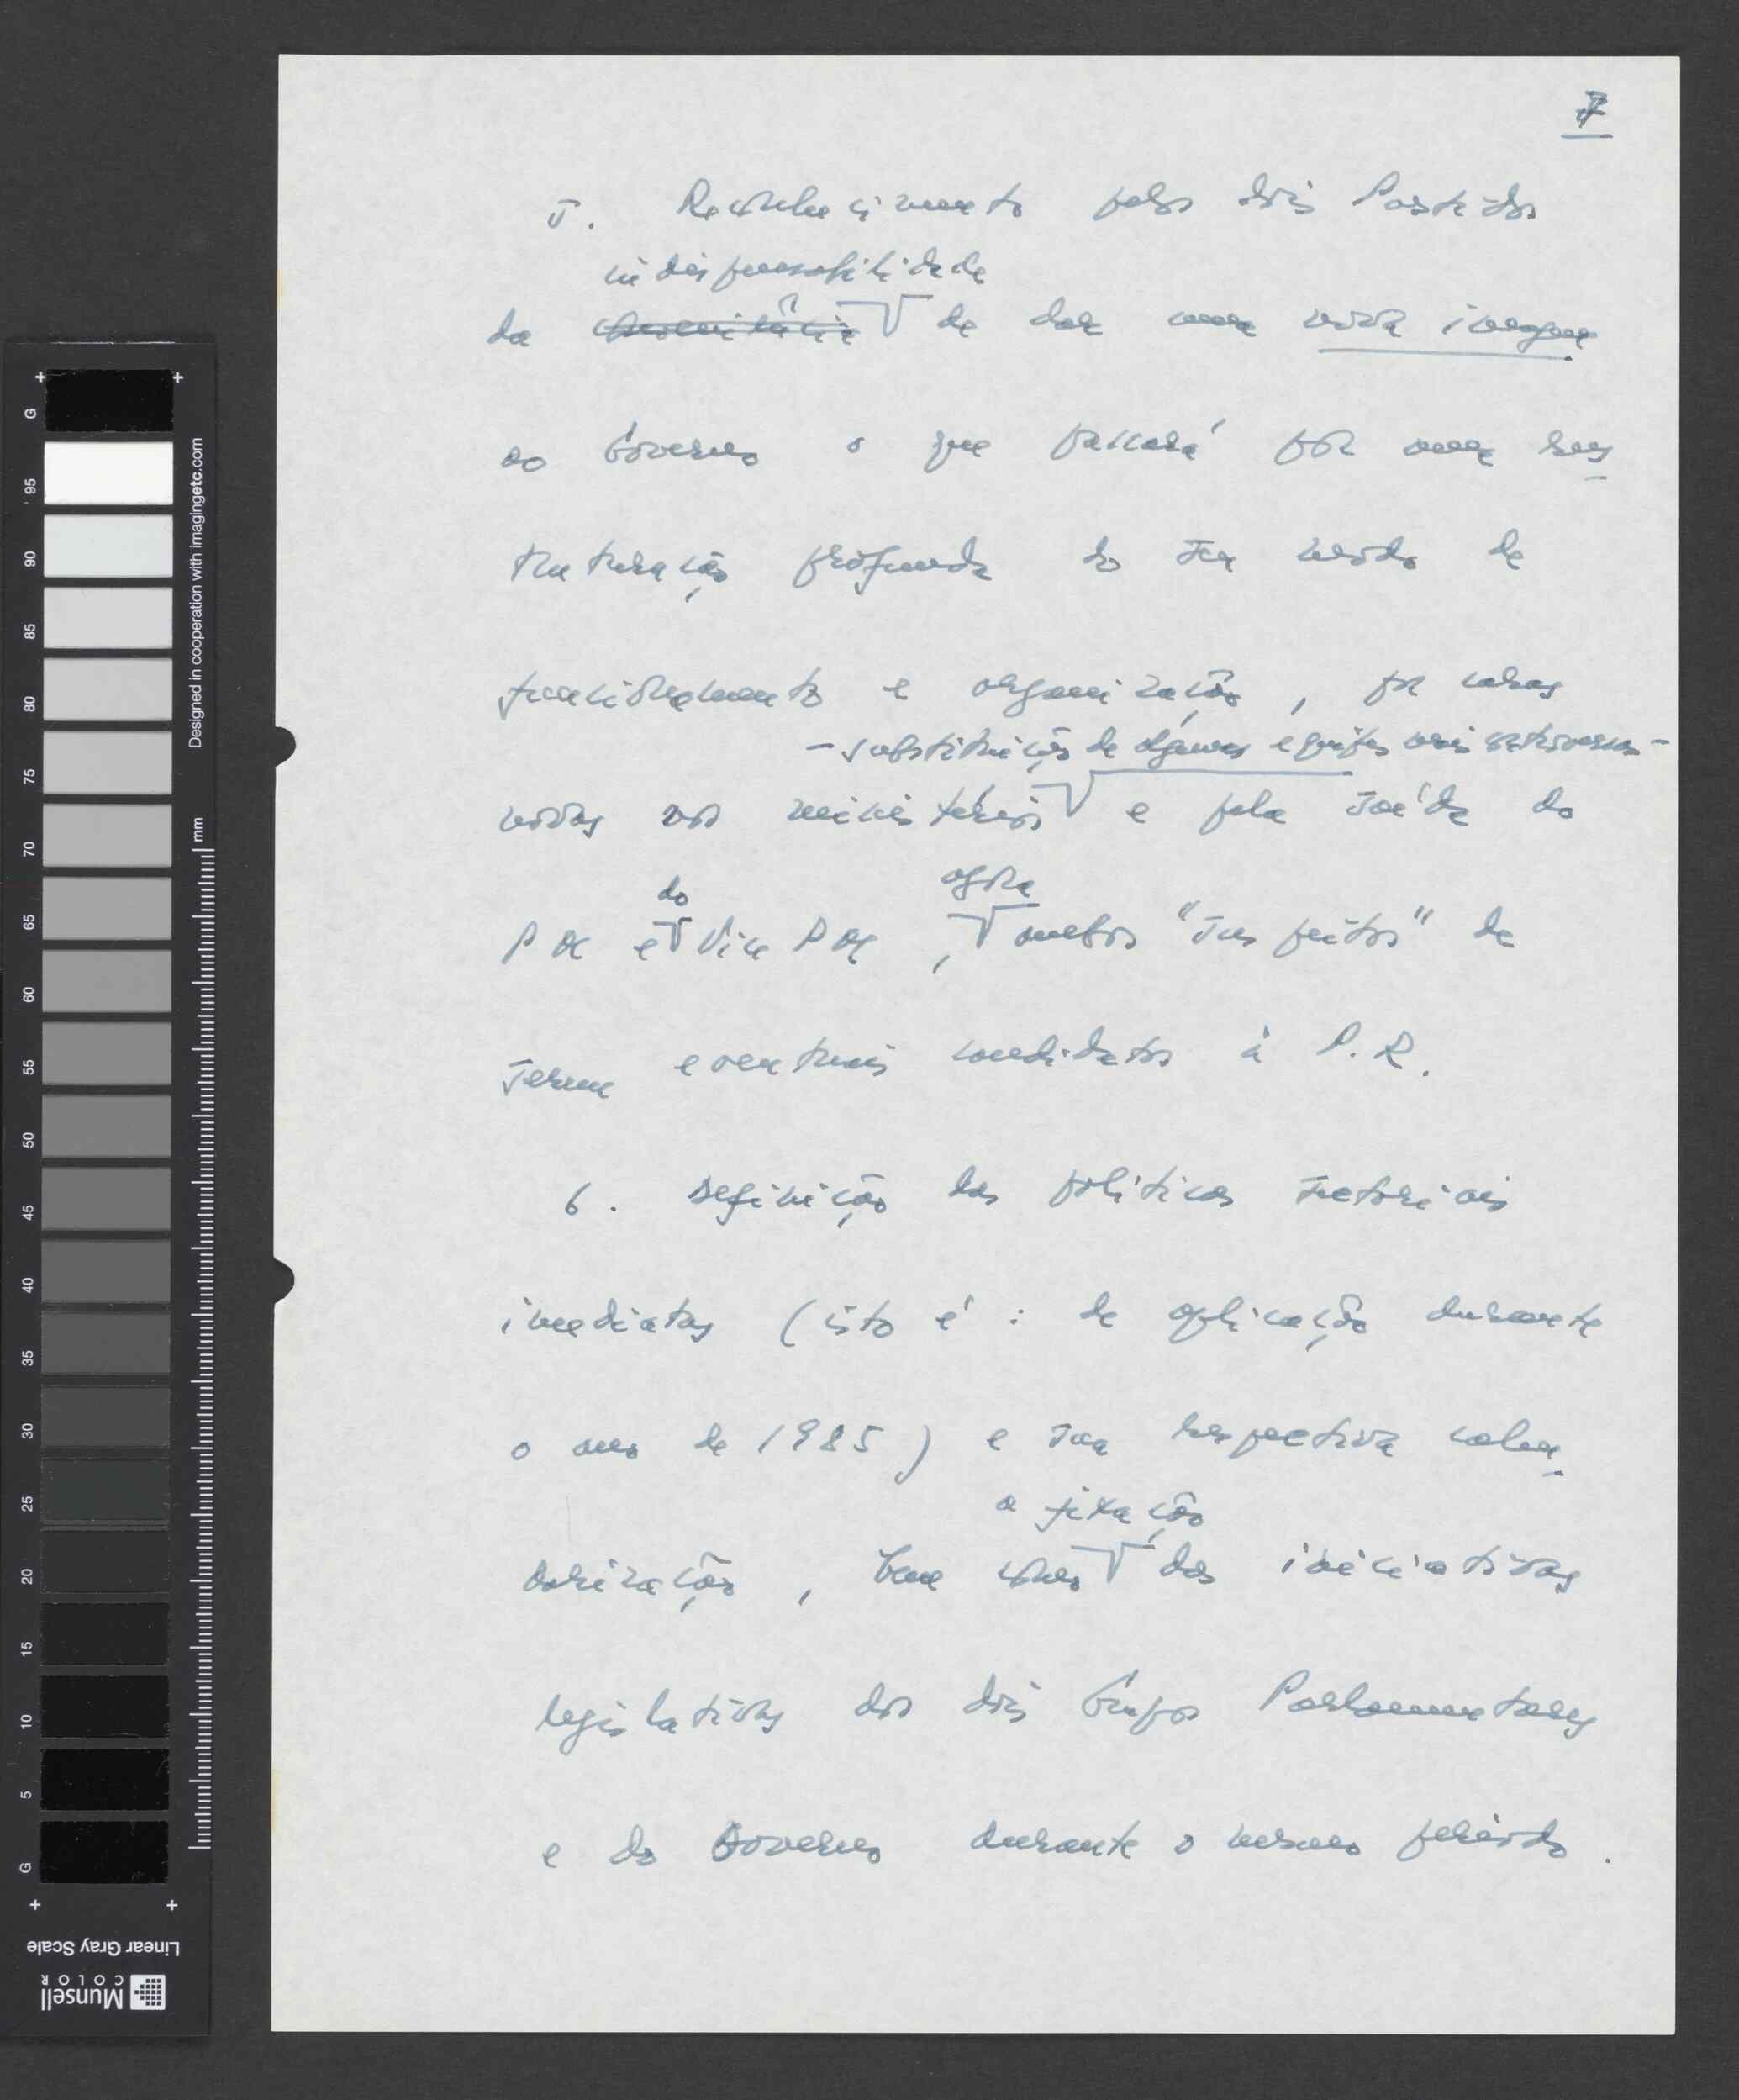 7
5. Reconhecimento pelos dois Partidos
indispensabilidade
da de dar uma nova imagem
ao Governo o que passará por uma rees
truturação profunda do seu modo de
funcionamento e organização, por caras
- substituição de algumas equipas mais controversas -
novas nos ministérios e pela saída do
do agora
PM e Vice PM, ambos "suspeitos" de
serem eventuais candidatos à P.R.
6. Definição das políticas sectoriais
imediatas (isto é: de aplicação durante
o ano de 1985) e sua respectiva calen
a fixação
darização, bem como das iniciativas
legislativas dos dois Grupos Parlamentares
e do Governo durante o mesmo período.
G 95 90 85 80 75 70 65 60 55 50 45 40 35 30 25 20 15 10 5 G
Designed in cooperation with imagingetc.com
mm
Linear Gray Scale
Munsell
COLOR